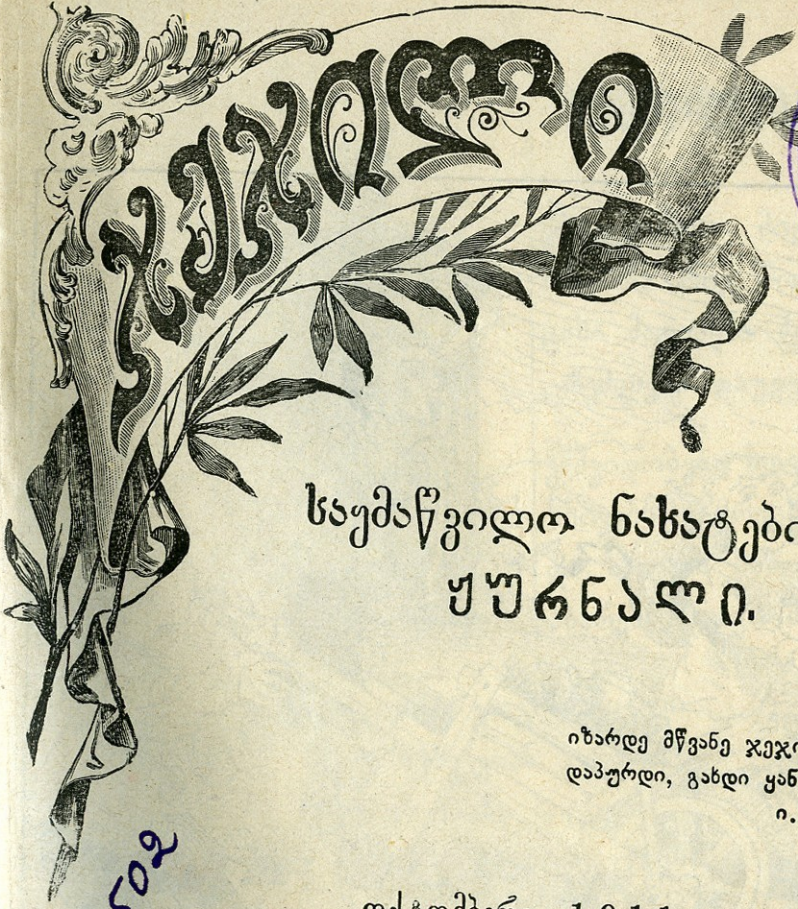 ჯეჯილი
საყმაწვილო ნახატები
ჟურნალი.
იზარდე მწვანე ჯეჯი
დაპურდი, გახდი ყან
ი.
502